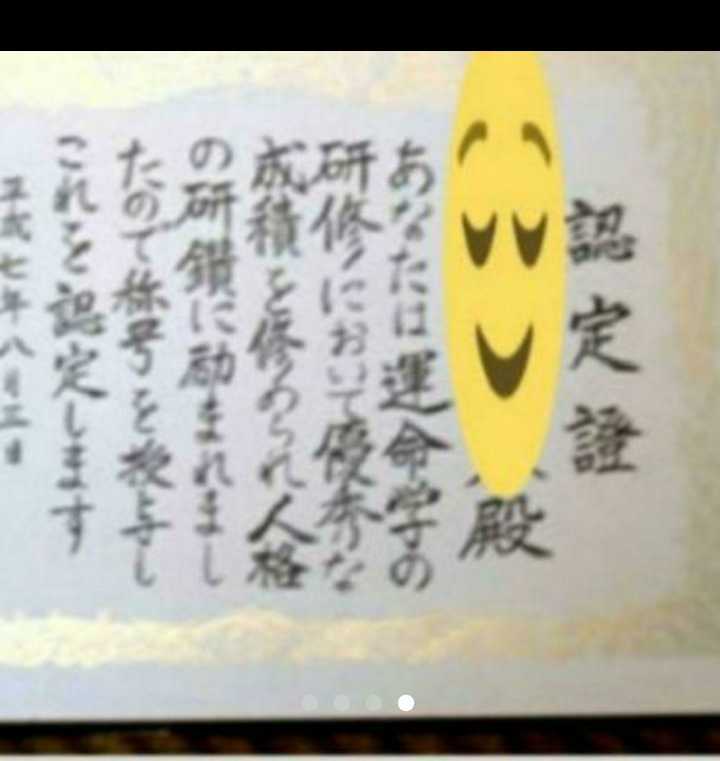 認定證
殿
あなたは運命学の
研修において優秀な
成積を修められ人格
の研鑽に励まれまし
たので称号を授与し
これを認定します
平成七年八月三日